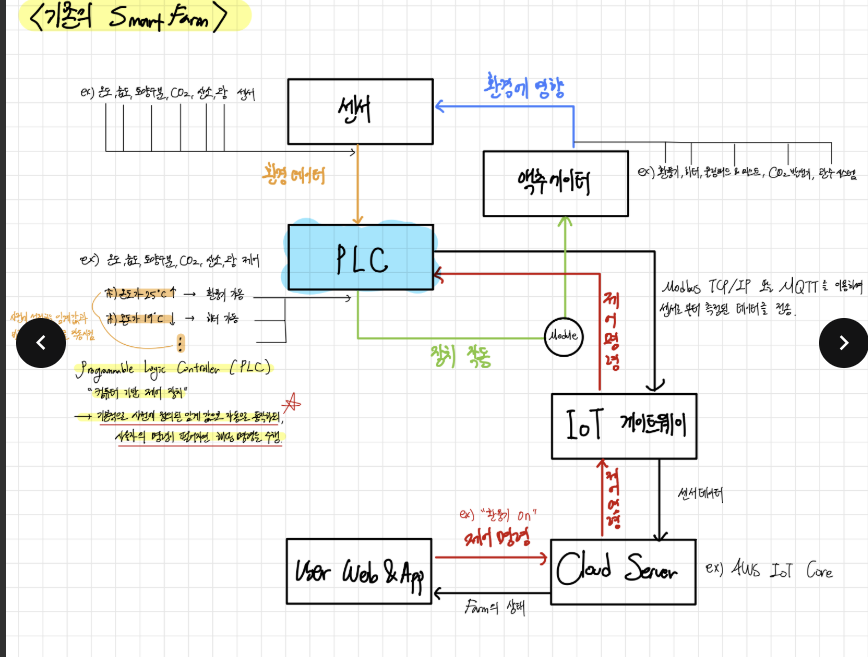 <기존의 Smart Farm>
ex) 온도, 습도, 토양수분, CO2, 산소, 광 센서
센서
환경에 영향
환경 데이터
액추에이터
ex) 환풍기, 히터, & 미스트, CO2 발생기, 관수 시스템
PLC
ex) 온도, 습도, 토양수분, CO2, 산소, 광 제어
if) 온도가 25°C ↑ → 환풍기 작동
if) 온도가 17°C ↓ → 히터 작동
Module
장치 작동
제어명령
Modbus TCP/IP 또는 MQTT을 이용하여
센서로부터 측정된 데이터를 전송.
Programmable Logic Controller (PLC)
"컴퓨터 기반 제어 장치"
→ 기본적으로 사전에 정의된 임계 값으로 자동으로 동작하되,
사용자의 명령이 해당 명령을 수행.
IoT 게이트웨이
제어명령
센서 데이터
ex) "환풍기 on"
제어 명령
User Web & App
Cloud Server
ex) AWS IoT Core
Farm의 상태